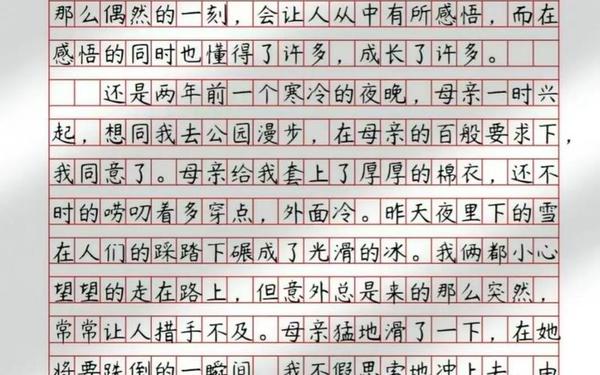 那么偶然的一刻，会让人从中有所感悟，而在
感悟的同时也懂得了许多，成长了许多。
还是两年前一个寒冷的夜晚，母亲一时兴
起，想同我去公园漫步，在母亲的百般要求下，
我同意了。母亲给我套上了厚厚的棉衣，还不
时的唠叨着多穿点，外面冷。昨天夜里下的雪
在人们的踩踏下碾成了光滑的冰。我俩都小心
望望的走在路上，但意外总是来的那么突然，
常常让人措手不及。母亲猛地滑了一下，在她
将要跌倒的一瞬间，我不假思索地冲上去，由